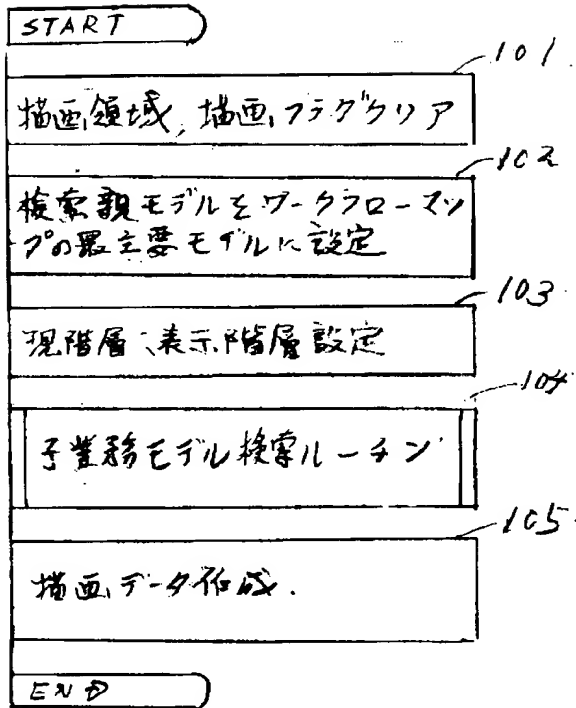 START
101
描画領域、描画フラグクリア
102
検索親モデルをワークフローマッ
プの最主要モデルに設定
103
現階層、表示階層設定
104
子業務モデル検索ルーチン
105
描画データ作成.
END